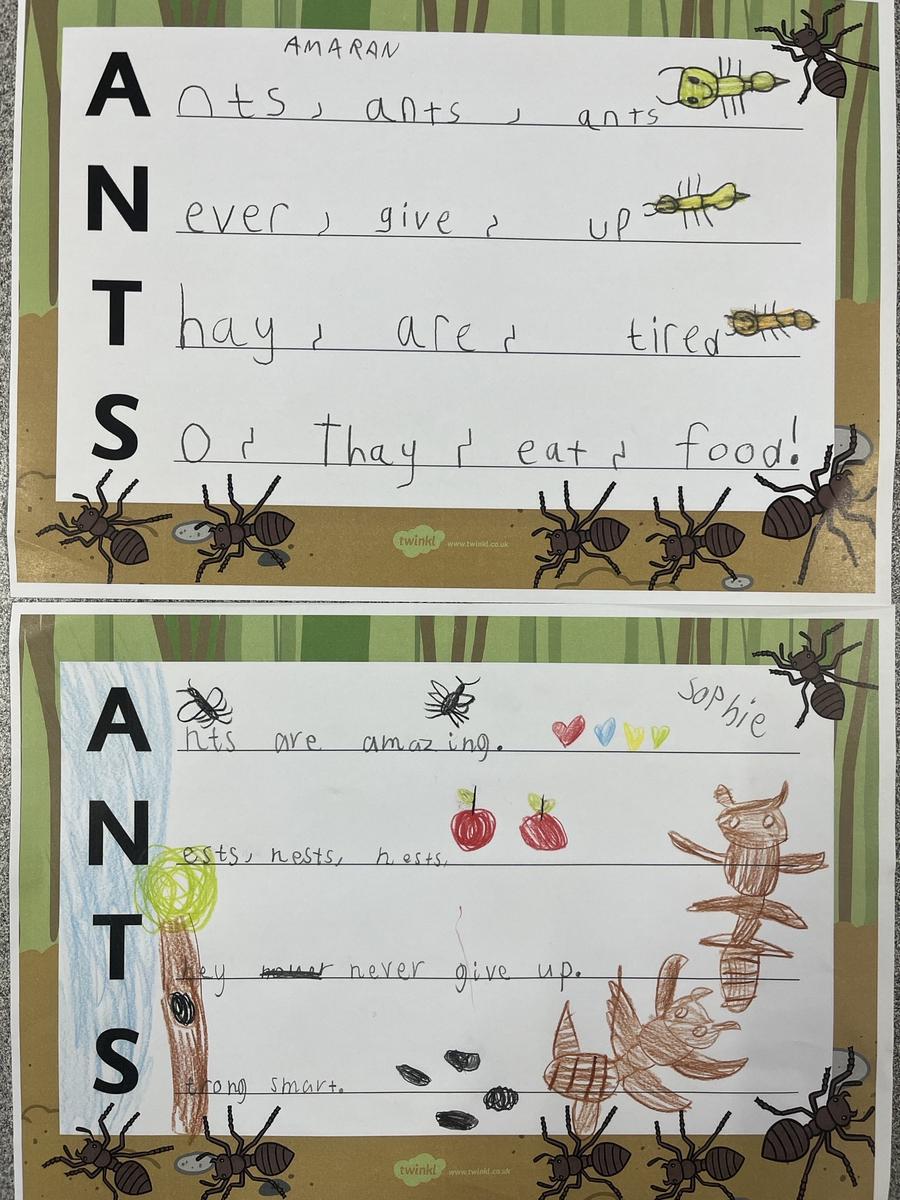 AMARAN
Ants, ants, ants
Never, give, up
Thay, are, tired
SO, Thay, eat, food!
twinkl www.twinkl.co.uk
Sophie
Ants are amazing.
Nests, nests, nests,
They never give up.
Strong smart.
twinkl www.twinkl.co.uk